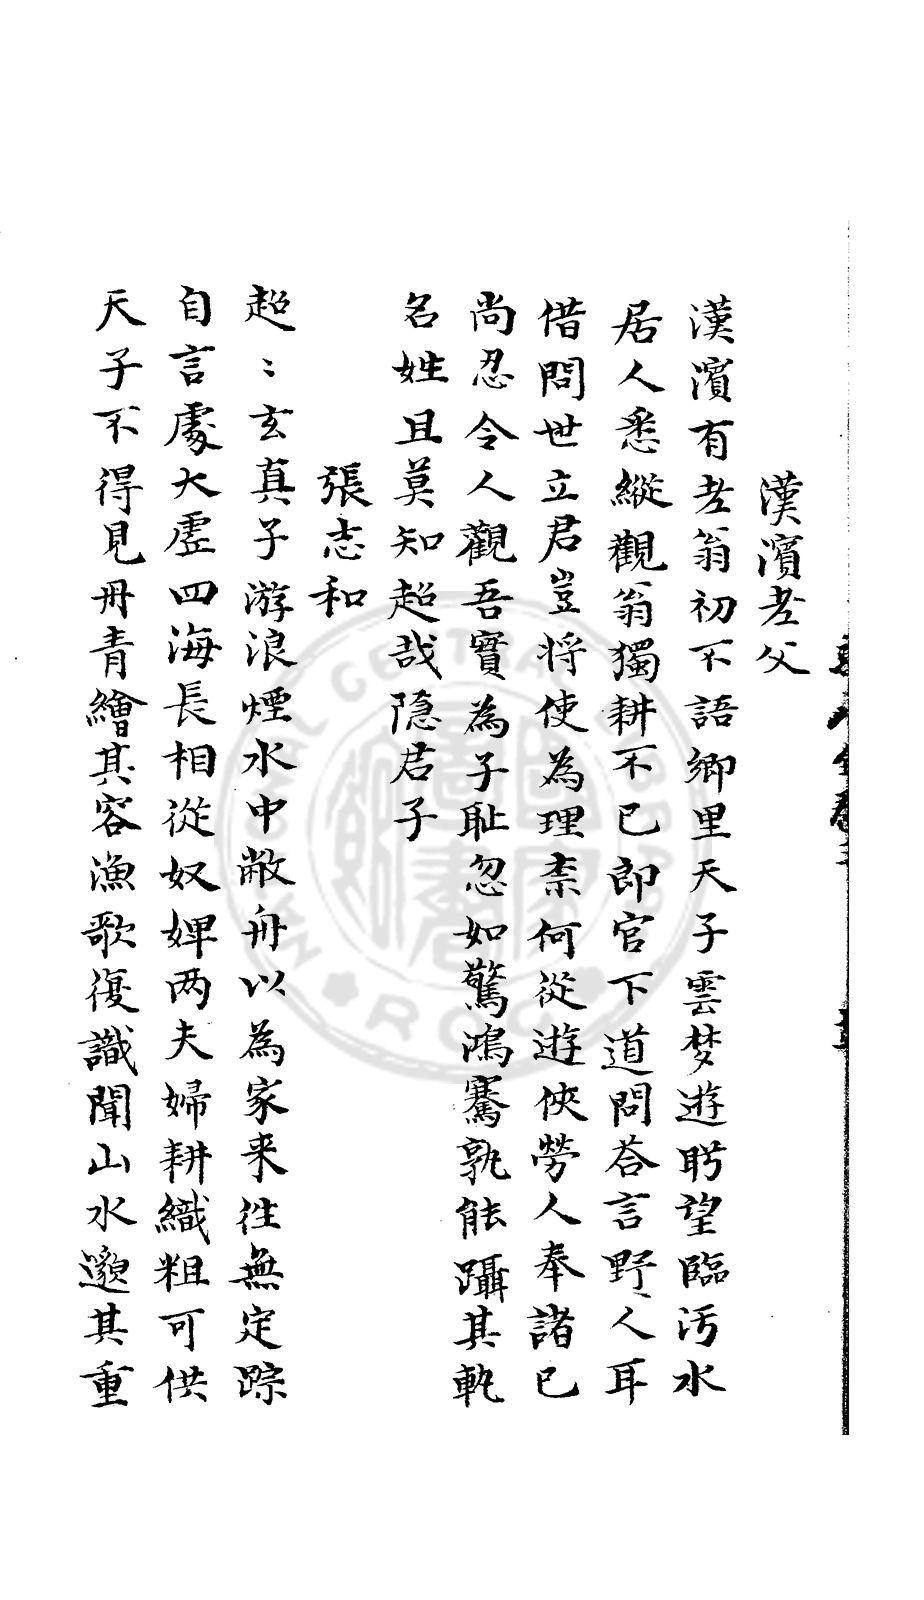 漢濱老父
漢濱有老翁初不語鄉里天子雲梦遊眄望臨沔水
居人悉縱觀翁獨耕不已郎官下道問荅言野人耳
借問世立君豈将使為理柰何從遊佚勞人奉諸已
尚忍令人觀吾實為子耻忽如驚鴻騫孰能躡其軌
名姓且莫知超哉隐君子
張志和
超〻玄真子游浪煙水中敝舟以為家来徃無定踪
自言處大虛四海長相從奴婢两夫婦耕織粗可供
天子不得見丹青繪其容漁歌復識聞山水邈其重
NATIONAL CENTRAL LIBRARY
R.O.C.
國家圖書館